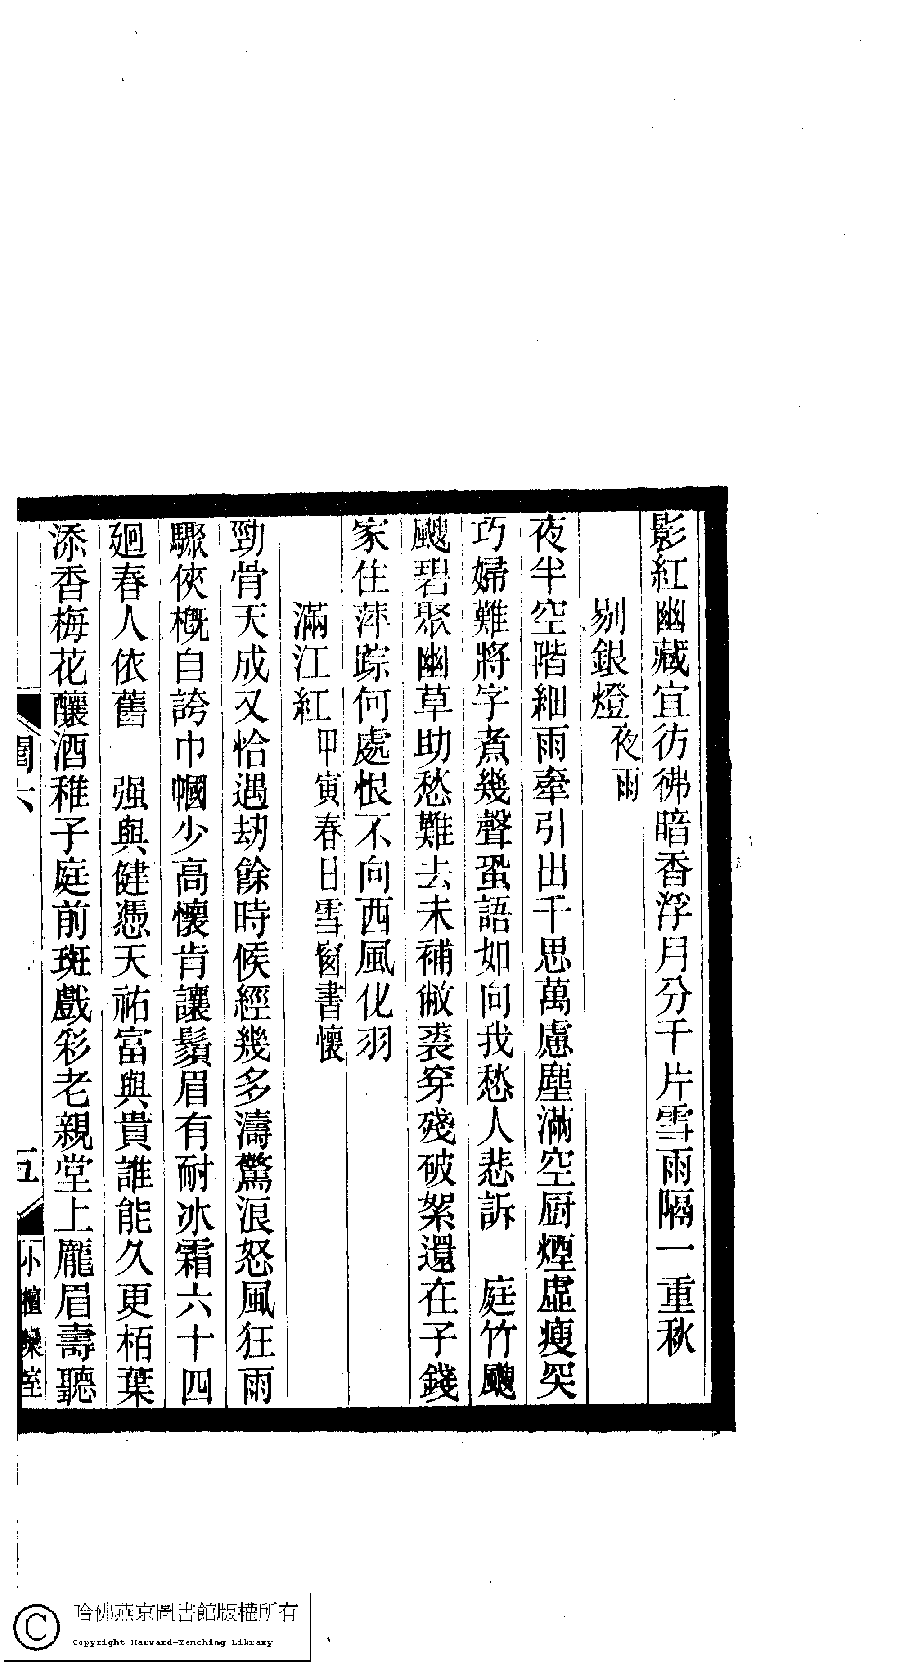 影紅幽藏宜彷彿暗香浮月分千片雪雨隔一重秋
剔銀燈夜雨
夜半空階細雨牽引出千思萬慮塵滿空厨煙虛瘦突
巧婦難將字煮幾聲蛩語如向我愁人悲訴　庭竹颼
颼碧聚幽草助愁難去未補敝裘穿殘破絮還在子錢
家住萍踪何處恨不向西風化羽
滿江紅甲寅春日雪窗書懷
勁骨天成又恰遇刼餘時候經幾多濤驚浪怒風狂雨
驟俠槪自誇巾幗少高懷肯讓鬚眉有耐冰霜六十四
廻春人依舊　强與健憑天祐富與貴誰能久更栢葉
添香梅花釀酒稚子庭前斑戲彩老親堂上龎眉壽聽
閨六
五
小檀欒室
哈佛燕京圖書館版權所有
Copyright Harvard-Yenching Library